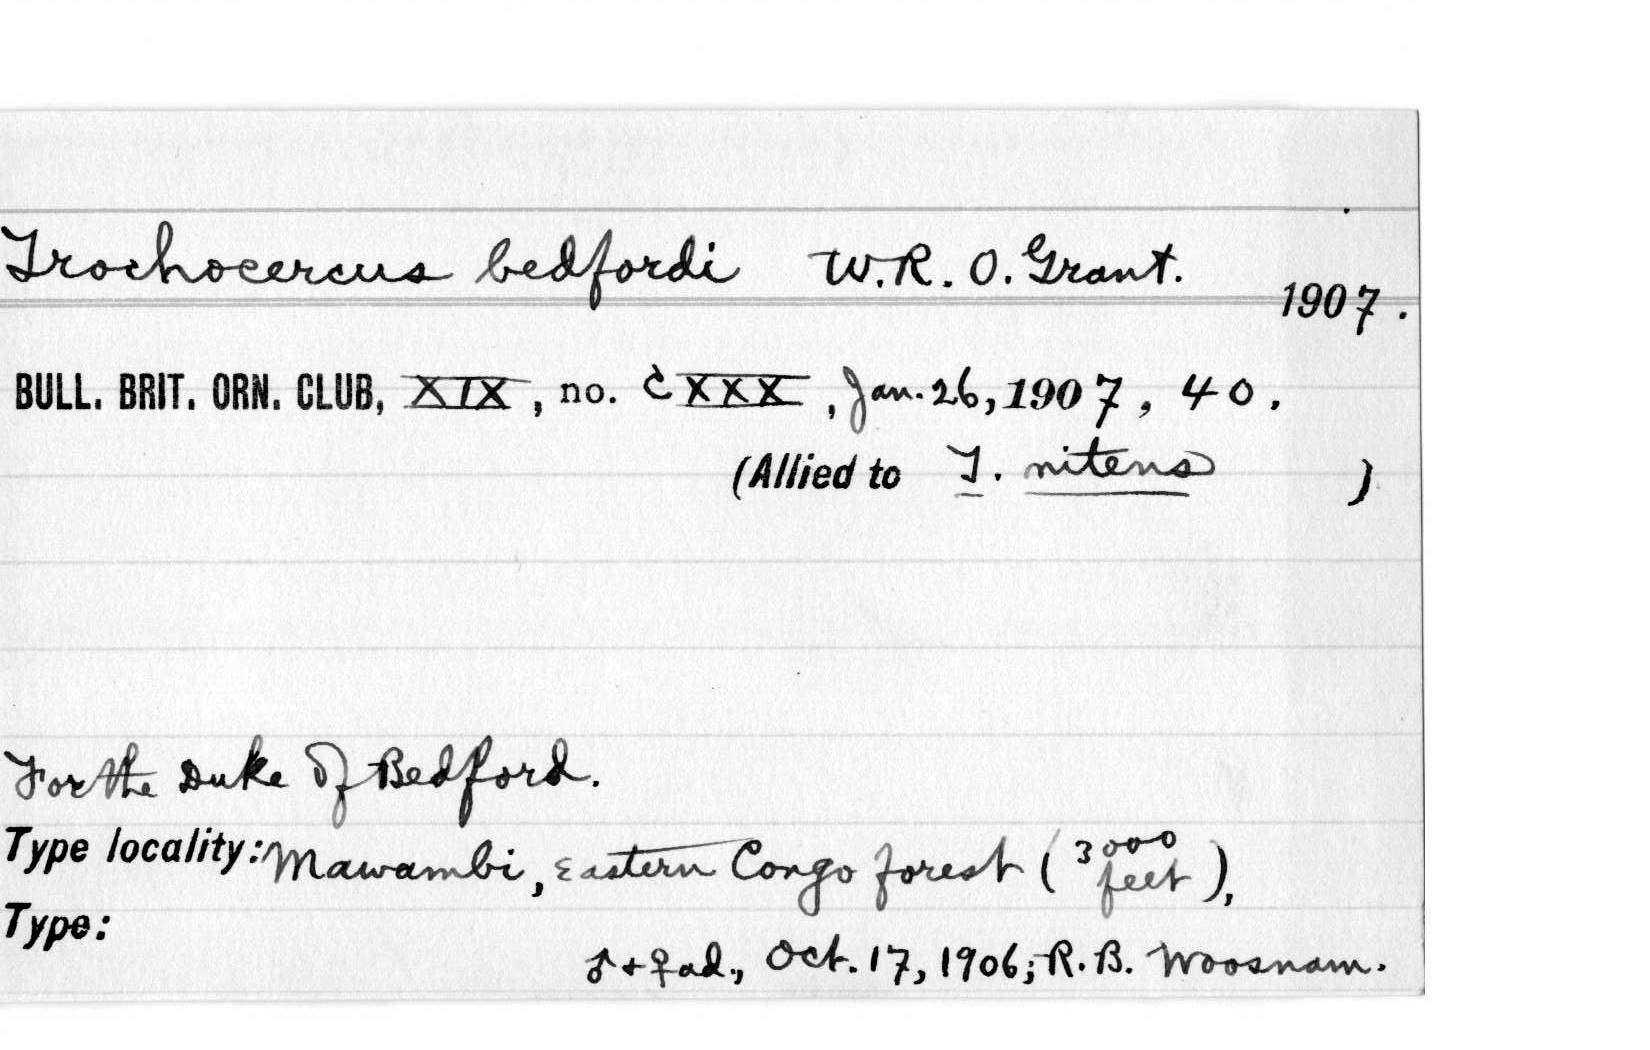 Trochocercus bedfordi W.R.O. Grant.
1907.
BULL. BRIT. ORN. CLUB, XIX, no. CXXX, Jan. 26, 1907, 40.
(Allied to T. nitens )
For the Duke of Bedford.
Type locality: Mawambi, Eastern Congo forest (3000 feet),
Type:
♂ + ♀ ad., Oct. 17, 1906; R. B. Woosnam.